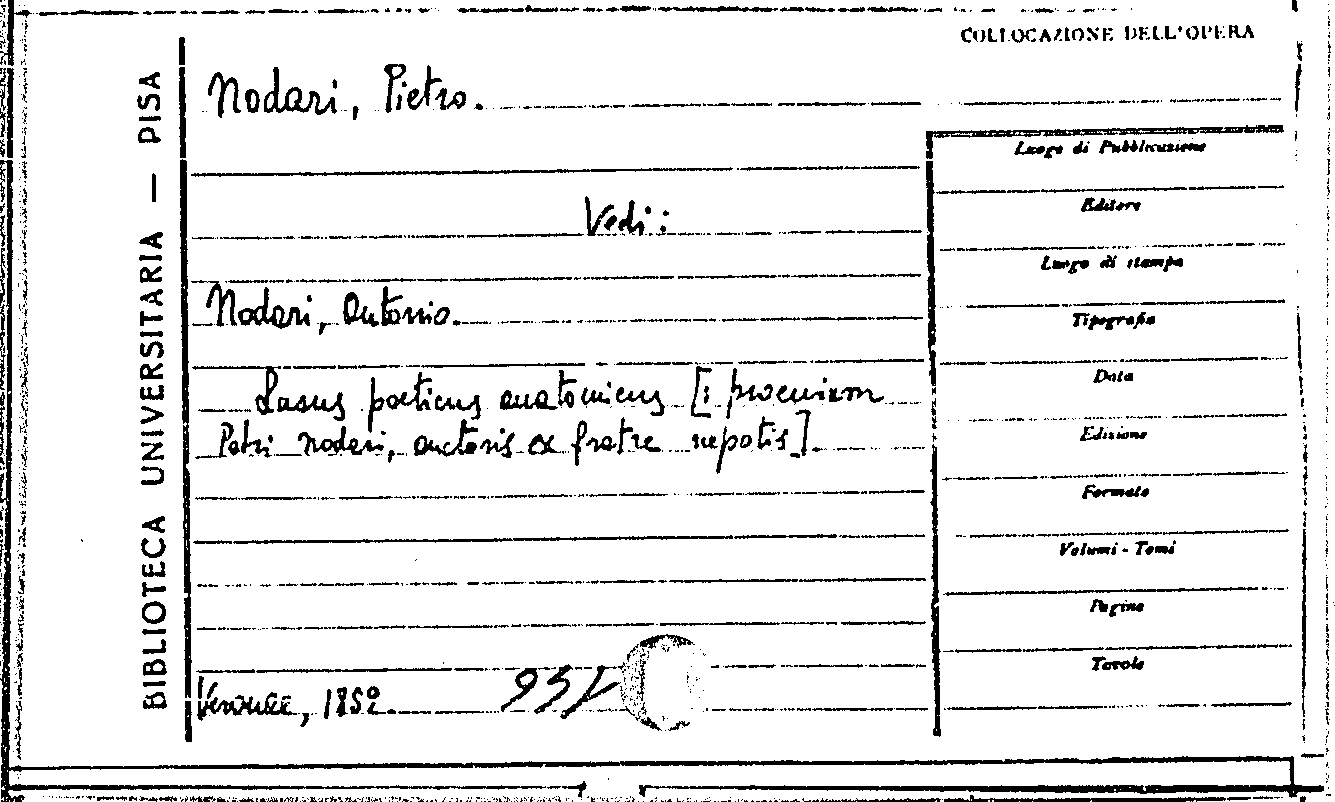 COLLOCAZIONE DELL'OPERA
BIBLIOTECA UNIVERSITARIA — PISA
Nodari, Pietro.
Vedi:
Nodari, Antonio.
Lusus poeticus anatomicus [: proemium
Petri Nodari, auctoris ex fratre nepotis].
Veronae, 1852.
Luogo di Pubblicazione
Editore
Luogo di stampa
Tipografia
Data
Edizione
Formato
Volumi - Tomi
Pagine
Tavole